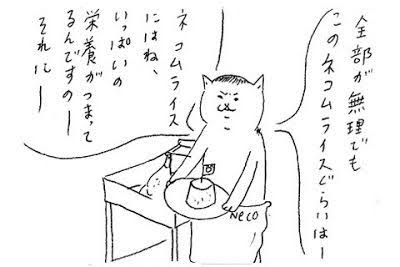 全部が無理でも
このネコムライスぐらいはー
ネコムライス
にはね、
いっぱいの
栄養がつまって
るんですのー
それにー
NeCO